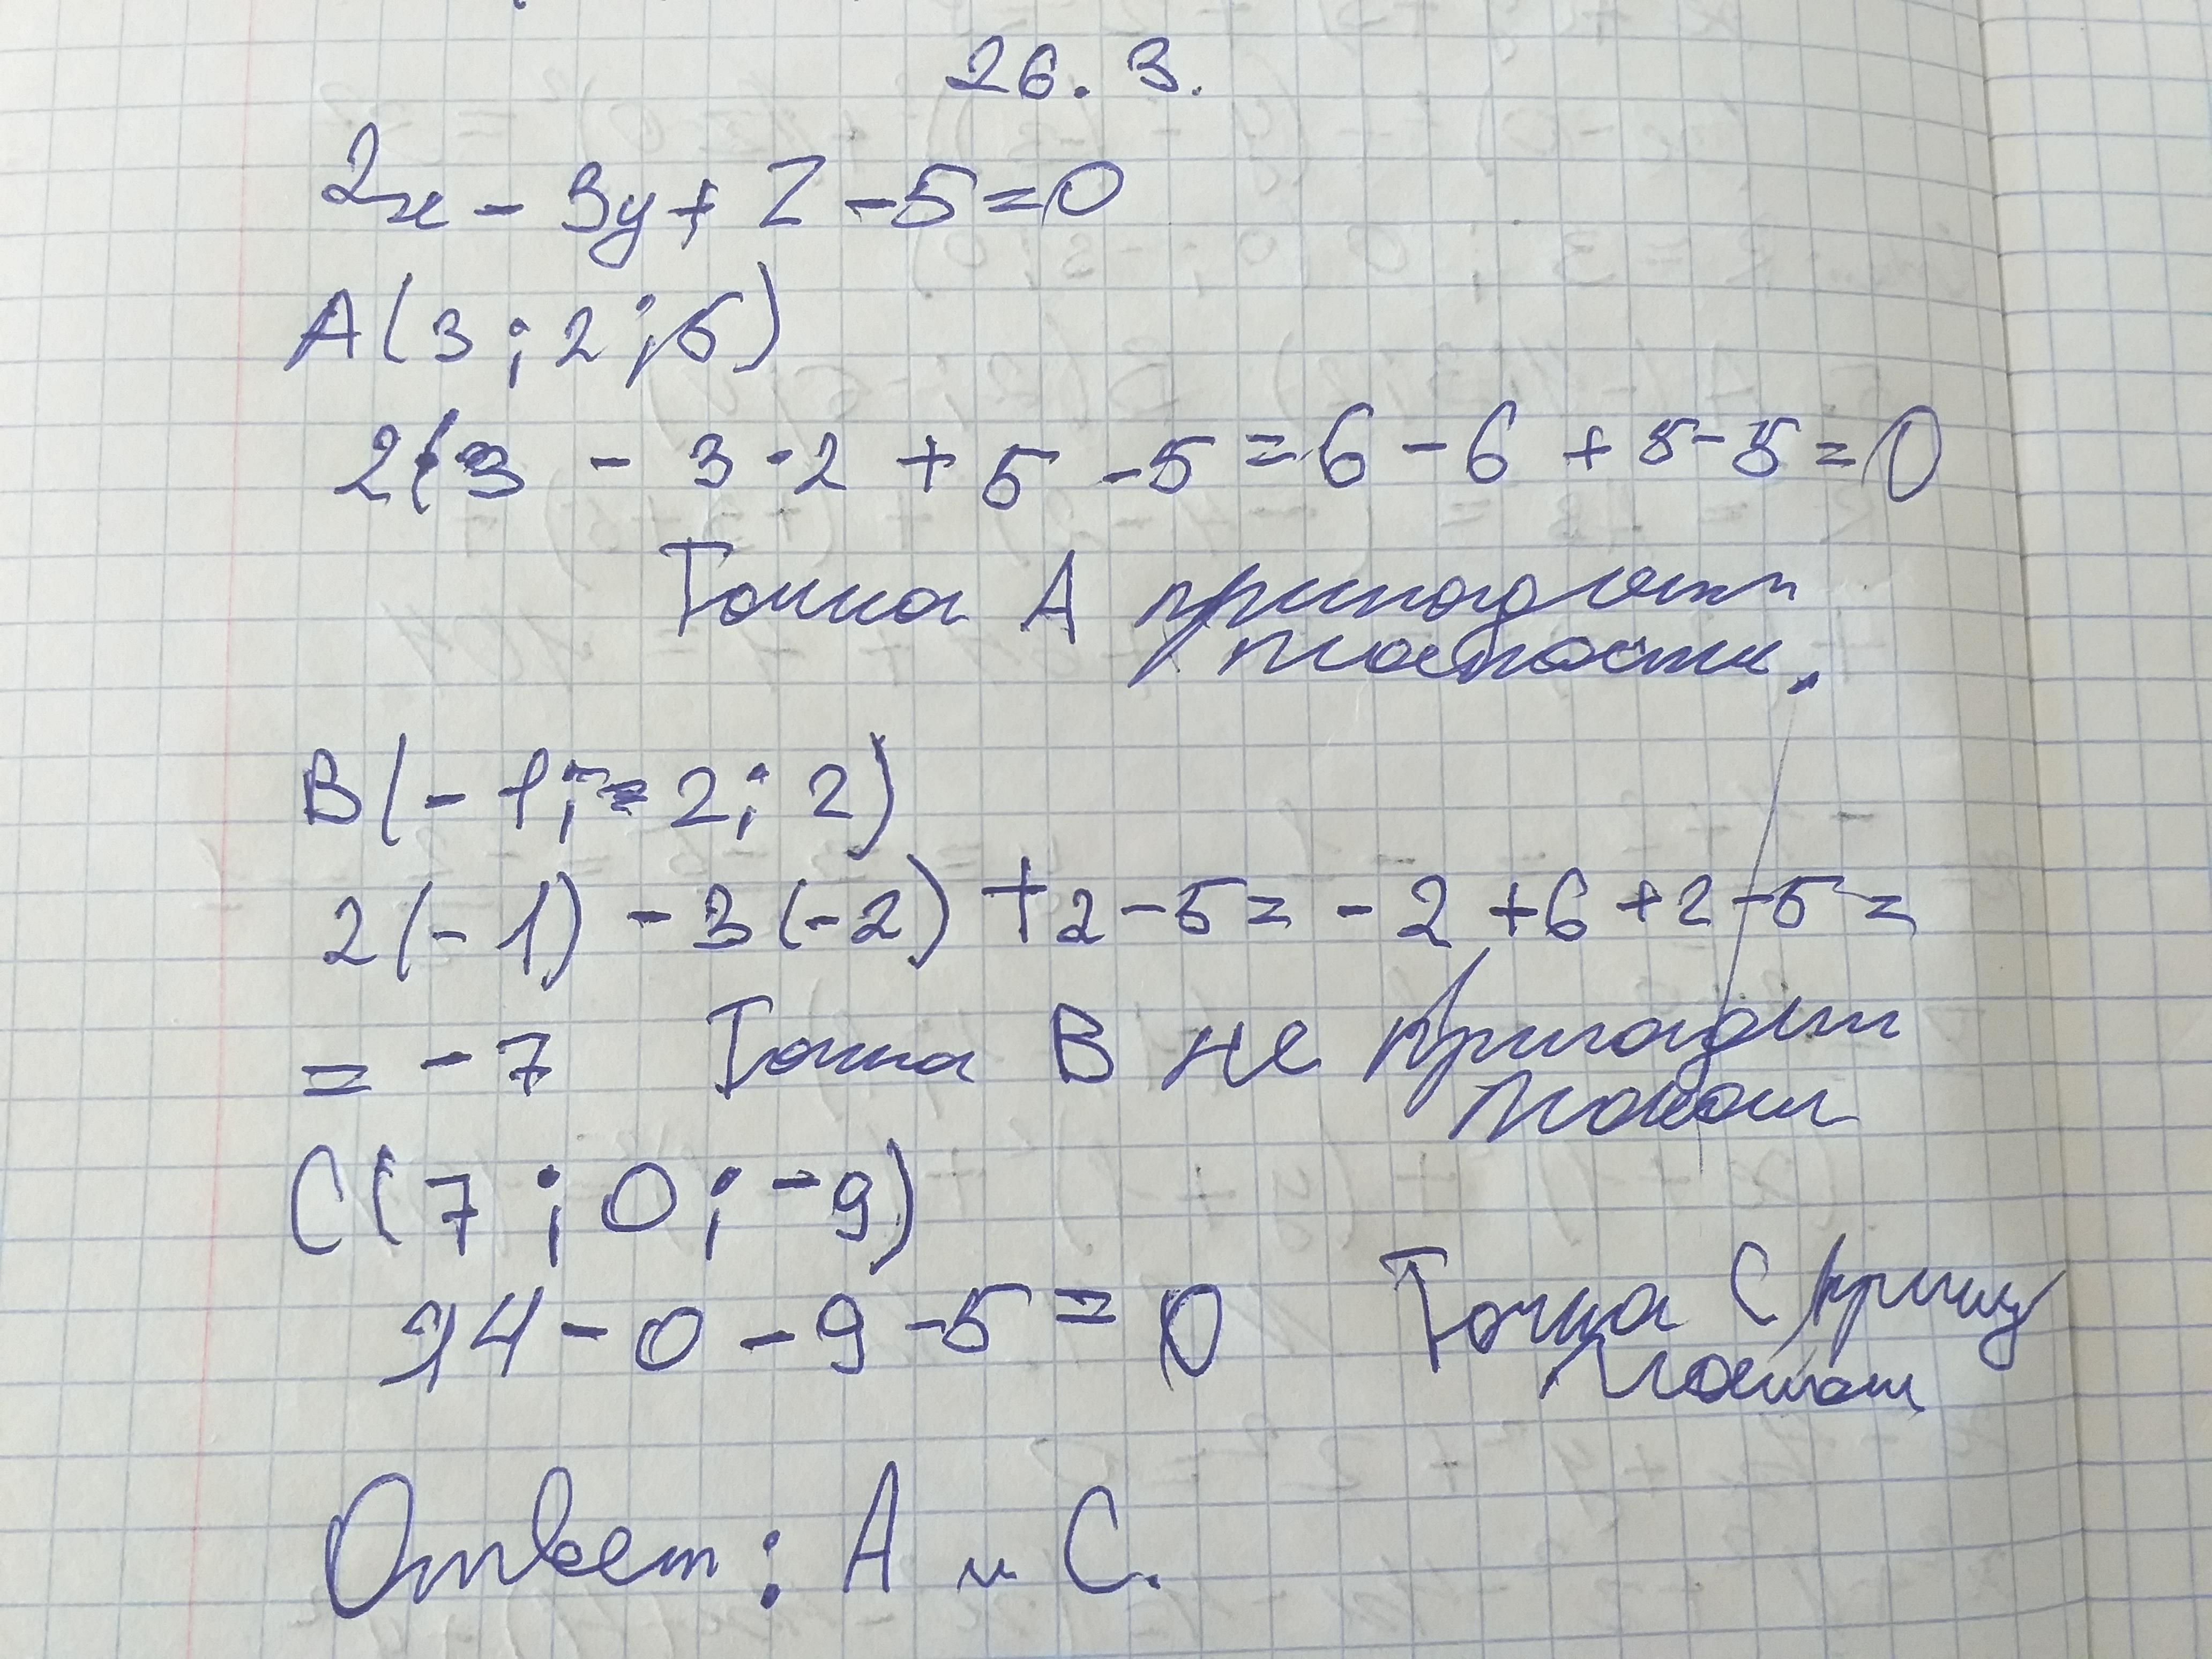 26.3.
2x - 3y + z - 5 = 0
A(3; 2; 5)
2(3 - 3·2 + 5 - 5 = 6 - 6 + 5 - 5 = 0
Точка А
B(-1; -2; 2)
2(-1) - 3(-2) + 2 - 5 = -2 + 6 + 2 - 5 =
= -7 Точка В не
C(7; 0; -9)
14 - 0 - 9 - 5 = 0 Точка С
Ответ: А и С.